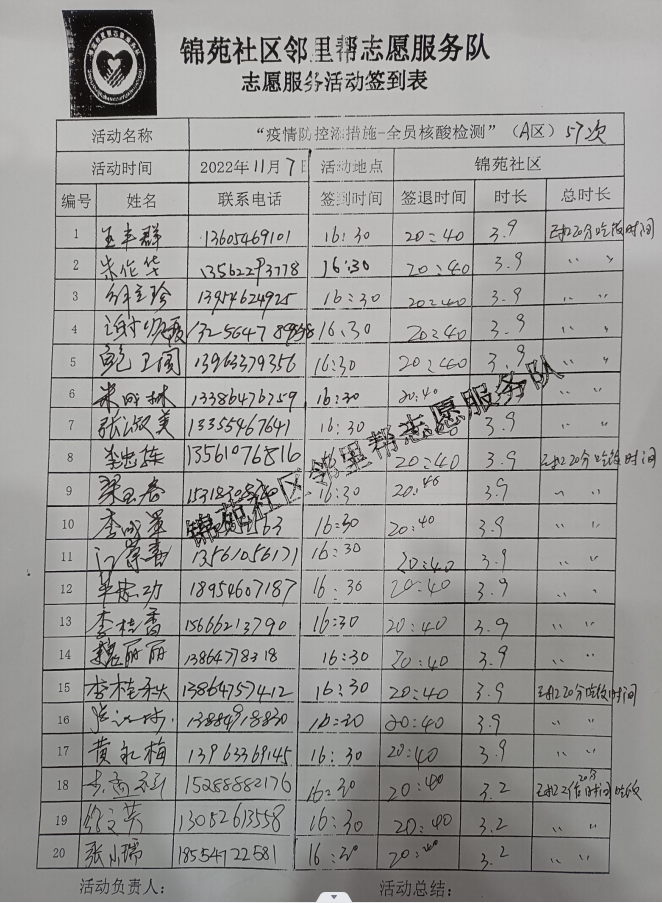 锦苑社区邻里帮志愿服务队
志愿服务活动签到表
活动名称 “疫情防控 措施-全员核酸检测”（A区）57次
活动时间 2022年11月7日 活动地点 锦苑社区
编号 姓名 联系电话 签到时间 签退时间 时长 总时长
1 王丰群 13605469101 16:30 20:40 3.9 已扣20分吃饭时间
2 朱作华 13562293778 16:30 20:40 3.9 〃 〃
3 珍 13954624925 16:30 20:40 3.9 〃 〃
4 谢 16:30 20:40 3.9 〃 〃
5 鲍卫国 13963379356 16:30 20:40 3.9 〃 〃
6 林 13386476259 16:30 20:40 3.9 〃 〃
7 张淑美 13355467641 16:30 3.9 〃 〃
8 李忠栋 13561076816 16:30 20:40 3.9 已扣20分吃饭时间
9 梁玉春 16:30 20:40 3.9 〃 〃
10 李 163 16:30 20:40 3.9 〃 〃
11 13561056171 16:30 20:40 3.9 〃 〃
12 功 18954607187 16:30 20:40 3.9 〃 〃
13 李桂香 15666213790 16:30 20:40 3.9 〃 〃
14 魏丽丽 13864778318 16:30 20:40 3.9 〃 〃
15 李桂秋 13864757412 16:30 20:40 3.9 已扣20分吃饭时间
16 13884918830 16:30 20:40 3.9 〃 〃
17 黄礼梅 13963369145 16:30 20:40 3.9 〃 〃
18 15288882176 16:30 20:40 3.2 已扣 20分 时间吃饭
19 徐文英 13052613558 16:30 20:40 3.2 〃 〃
20 张小瑞 18554722581 16:30 20:40 3.2 〃 〃
锦苑社区邻里帮志愿服务队
活动负责人： 活动总结：